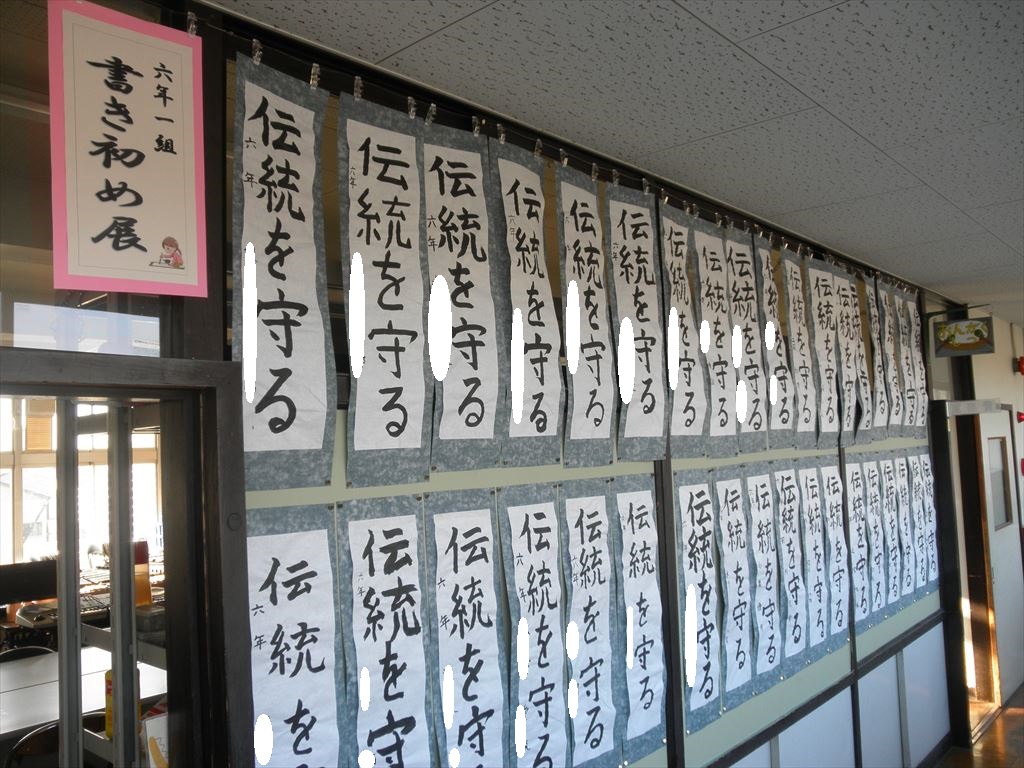 六年一組
書き初め展
伝統を守る
六年
伝統を守る
六年
伝統を守る
六年
伝統を守る
六年
伝統を守る
六年
伝統を守る
六年
伝統を守る
伝統を守る
伝統を守る
伝統を守る
伝統を守る
伝統を守る
伝統を守る
伝統を
六年
伝統を守
六年
伝統を守
六年
伝統を守る
六年
伝統を守る
六年
伝統を守る
六年
伝統を守る
伝統を守る
伝統を守る
伝統を守る
伝統を守る
伝統を守る
伝統を守る
伝統を守る
伝統を守る
伝統を守る
伝統を守る
伝統を守る